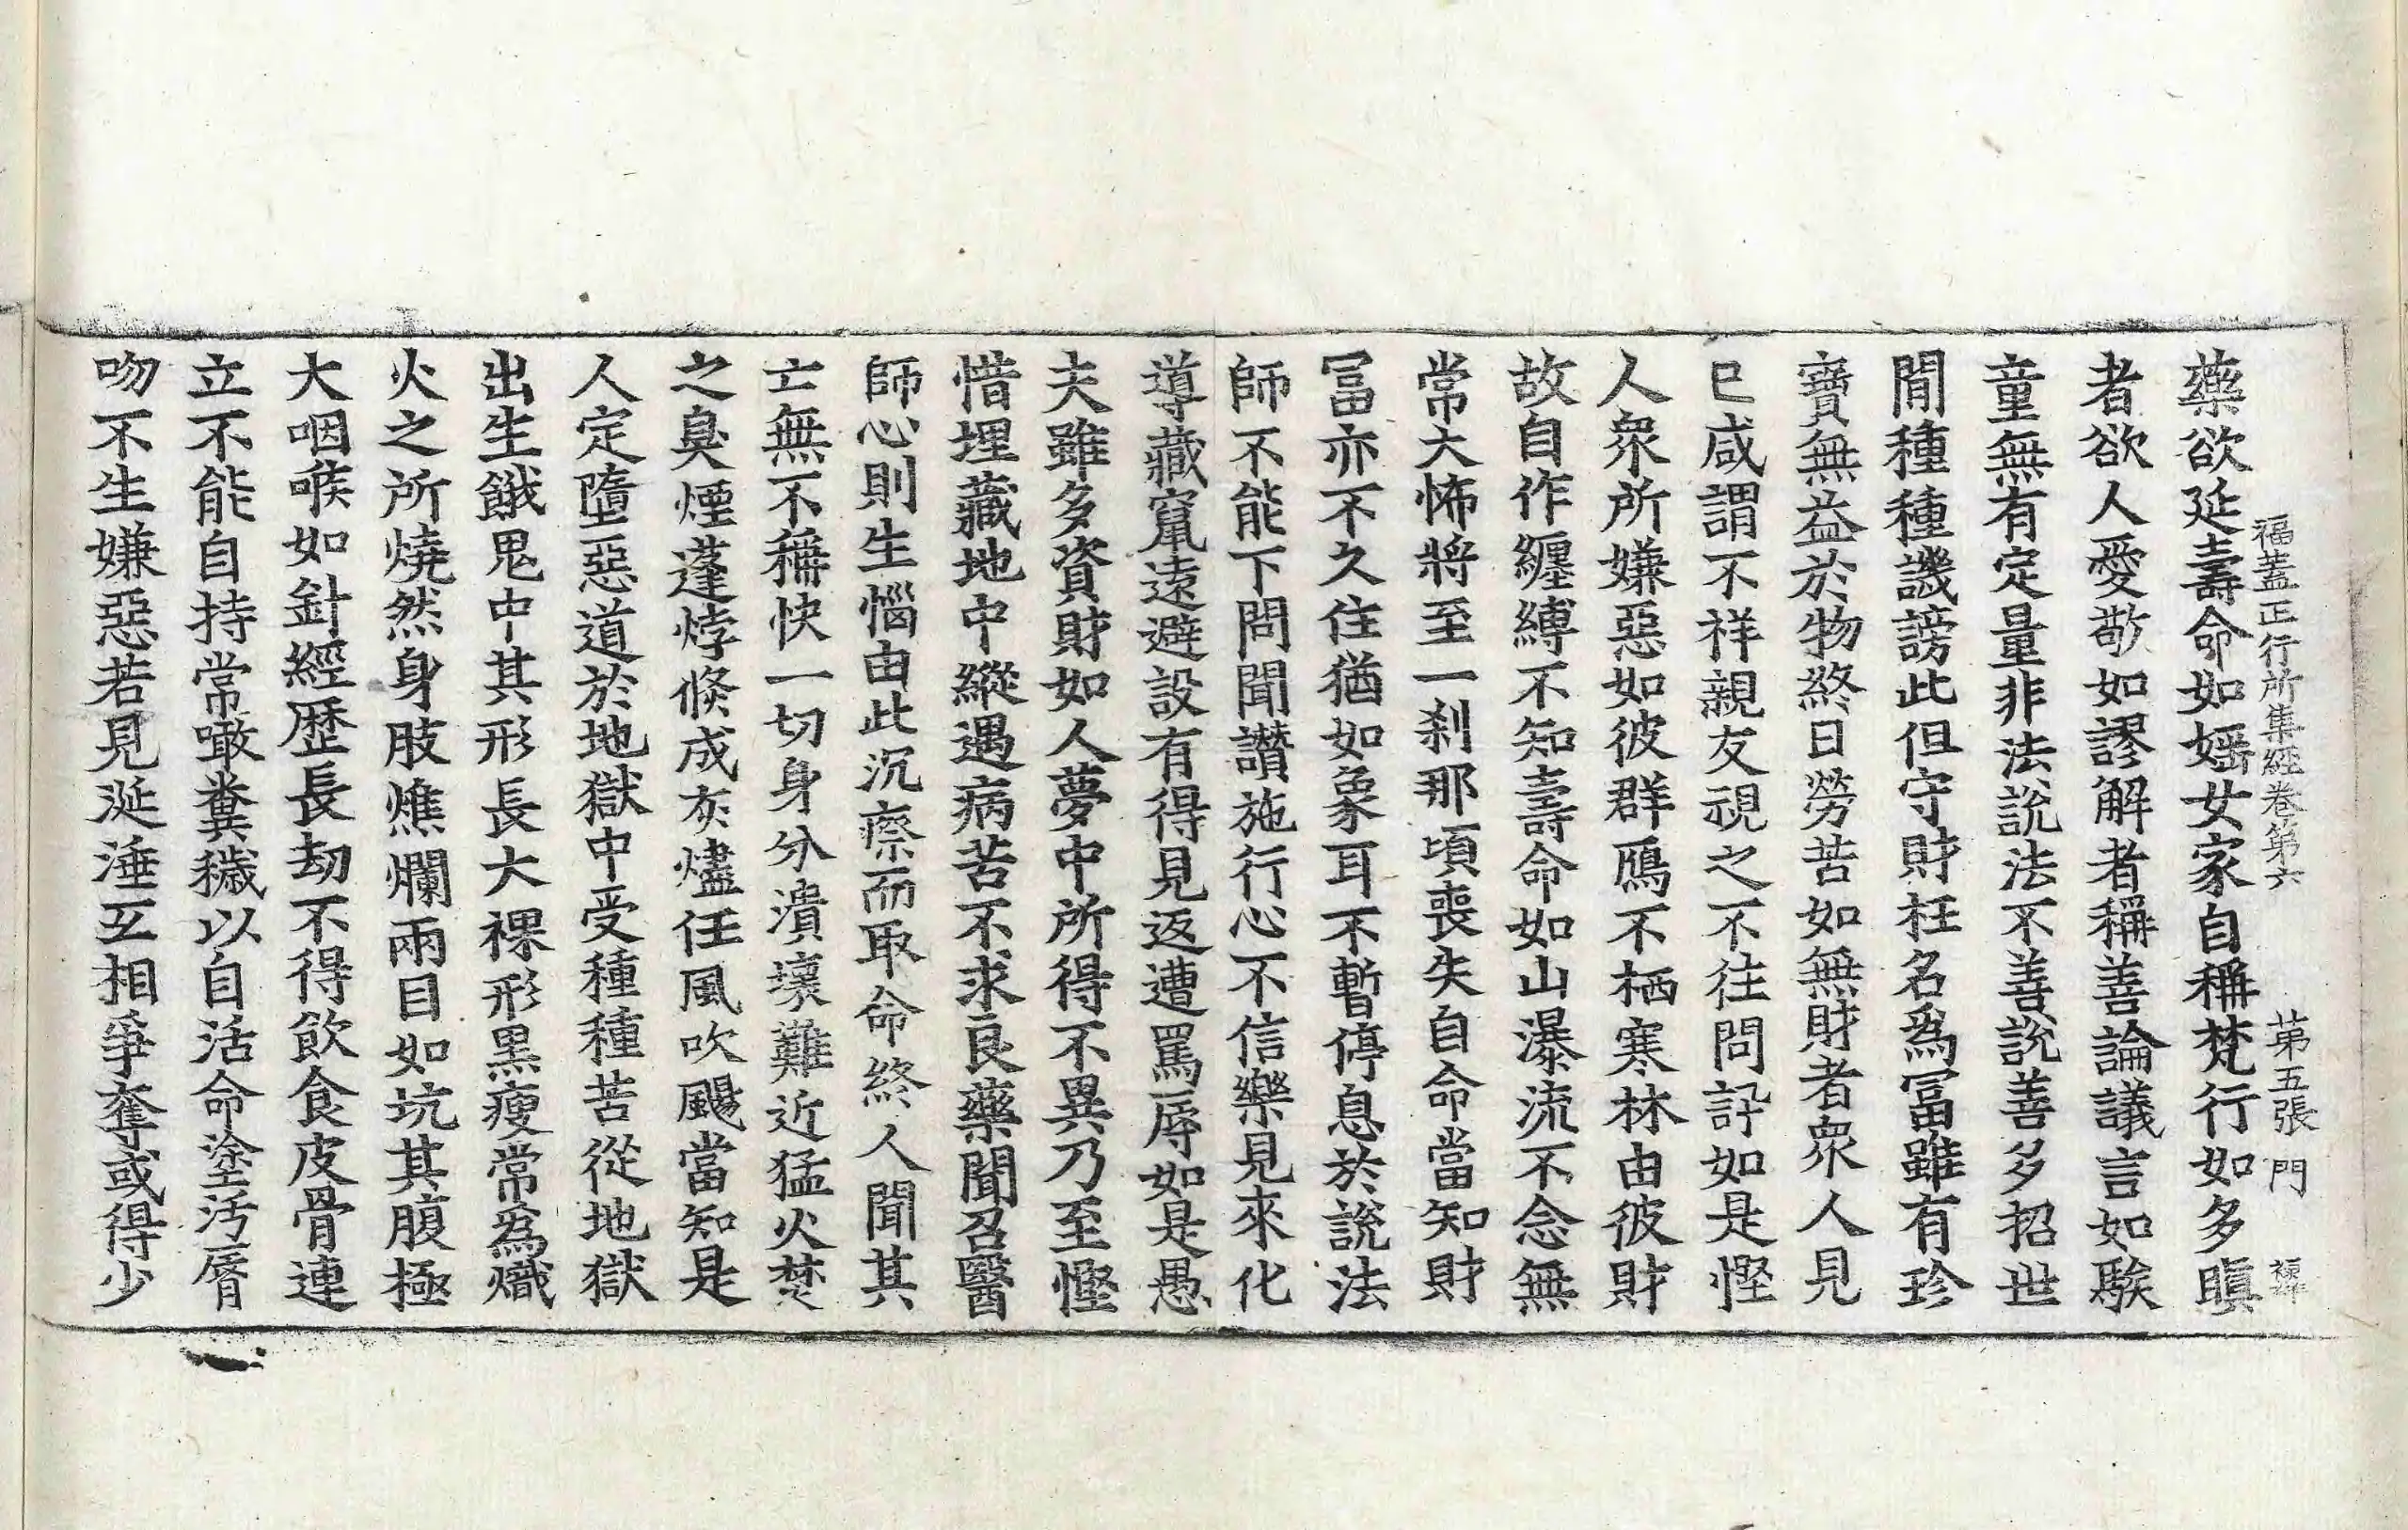 福蓋正行所集經卷第六 第五張 門
藥欲延壽命如婬女家自稱梵行如多瞋
者欲人愛敬如謬解者稱善論議言如騃
童無有定量非法說法不善說善多招世
間種種譏謗此但守財枉名爲冨雖有珍
寶無益於物終日勞苦如無財者衆人見
已咸謂不祥親友視之不往問訃如是慳
人衆所嫌惡如彼群鴈不栖寒林由彼財
故自作纏縛不知壽命如山瀑流不念無
常大怖將至一剎那頃喪失自命當知財
冨亦不久住猶如象耳不暫停息於說法
師不能下問聞讚施行心不信樂見來化
導藏竄遠避設有得見返遭罵辱如是愚
夫雖多資財如人夢中所得不異乃至慳
惜埋藏地中縱遇病苦不求良藥聞召醫
師心則生惱由此沉瘵而取命終人聞其
亡無不稱快一切身分潰壞難近猛火焚
之臭煙蓬㶿倐成灰燼任風吹颺當知是
人定墮惡道於地獄中受種種苦從地獄
出生餓鬼中其形長大裸形黑瘦常爲熾
火之所燒然身肢燋爛兩目如坑其腹極
大咽喉如針經歷長劫不得飲食皮骨連
立不能自持常噉糞穢以自活命塗汚脣
吻不生嫌惡若見涎洟互相爭奪或得少